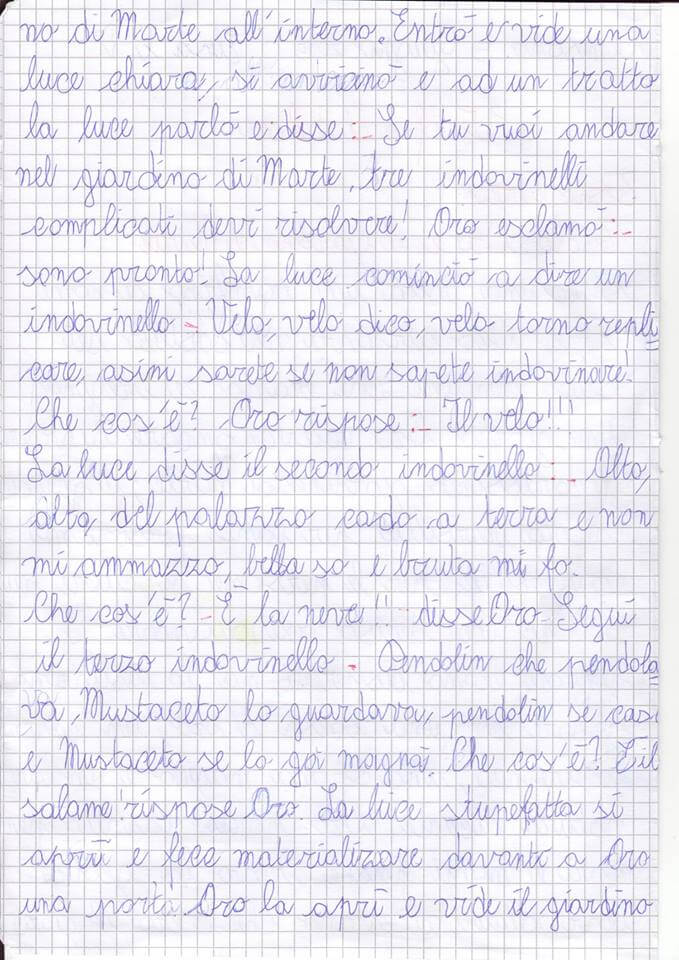 no di Marte all'interno. Entrò e vide una
luce chiara, si avvicinò e ad un tratto
la luce parlò e disse:- Se tu vuoi andare
nel giardino di Marte, tre indovinelli
complicati devi risolvere! Oro esclamò:-
sono pronto! La luce cominciò a dire un
indovinello - Velo, velo dico, velo torno repli
care, asini sarete se non sapete indovinare!
Che cos'è? Oro rispose:- Il velo!!!
La luce disse il secondo indovinello:- Alto,
alto, del palazzo cado a terra e non
mi ammazzo, bella so e bruta mi fo.
Che cos'è? - È la neve!! - disse Oro - Seguì
il terzo indovinello - Pendolin che pendola
va, Mustaceto lo guardava, pendolin se casi
e Mustaceto se lo gà magnà. Che cos'è? È il
salame! rispose Oro. La luce stupefatta si
aprì e fece materializare davanti a Oro
una porta. Oro la aprì e vide il giardino